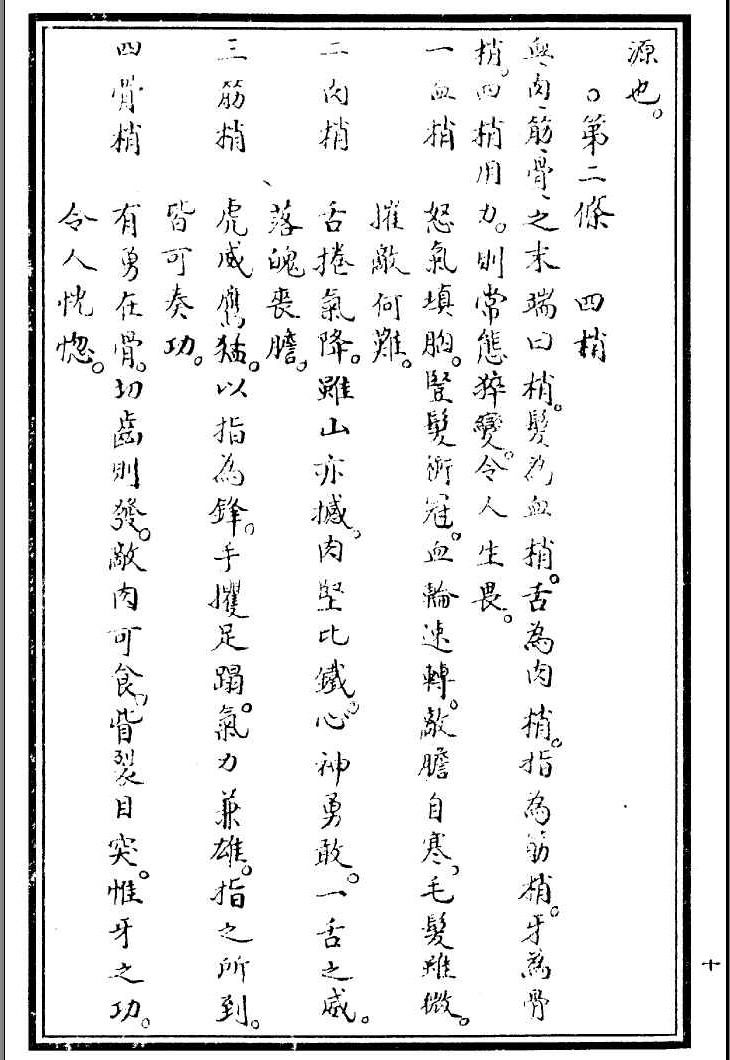 源也。
○第二條　四梢
血、肉、筋、骨、之末端曰梢。髮為血梢。舌為肉梢。指為筋梢。牙為骨
梢。四梢用力。則常態猝變。令人生畏。
一血梢　怒氣填胸。豎髮衝冠。血輪速轉。敵膽自寒、毛髮雖微。
摧敵何難。
二肉梢　舌捲氣降。雖山亦撼、肉堅比鐵、心神勇敢。一舌之威。
落魄喪膽、
三筋梢　虎威鷹猛。以指為鋒。手攫足蹋。氣力兼雄。指之所到。
皆可奏功。
四骨梢　有勇在骨。切齒則發。敵肉可食、眥裂目突。惟牙之功。
令人恍惚。
十